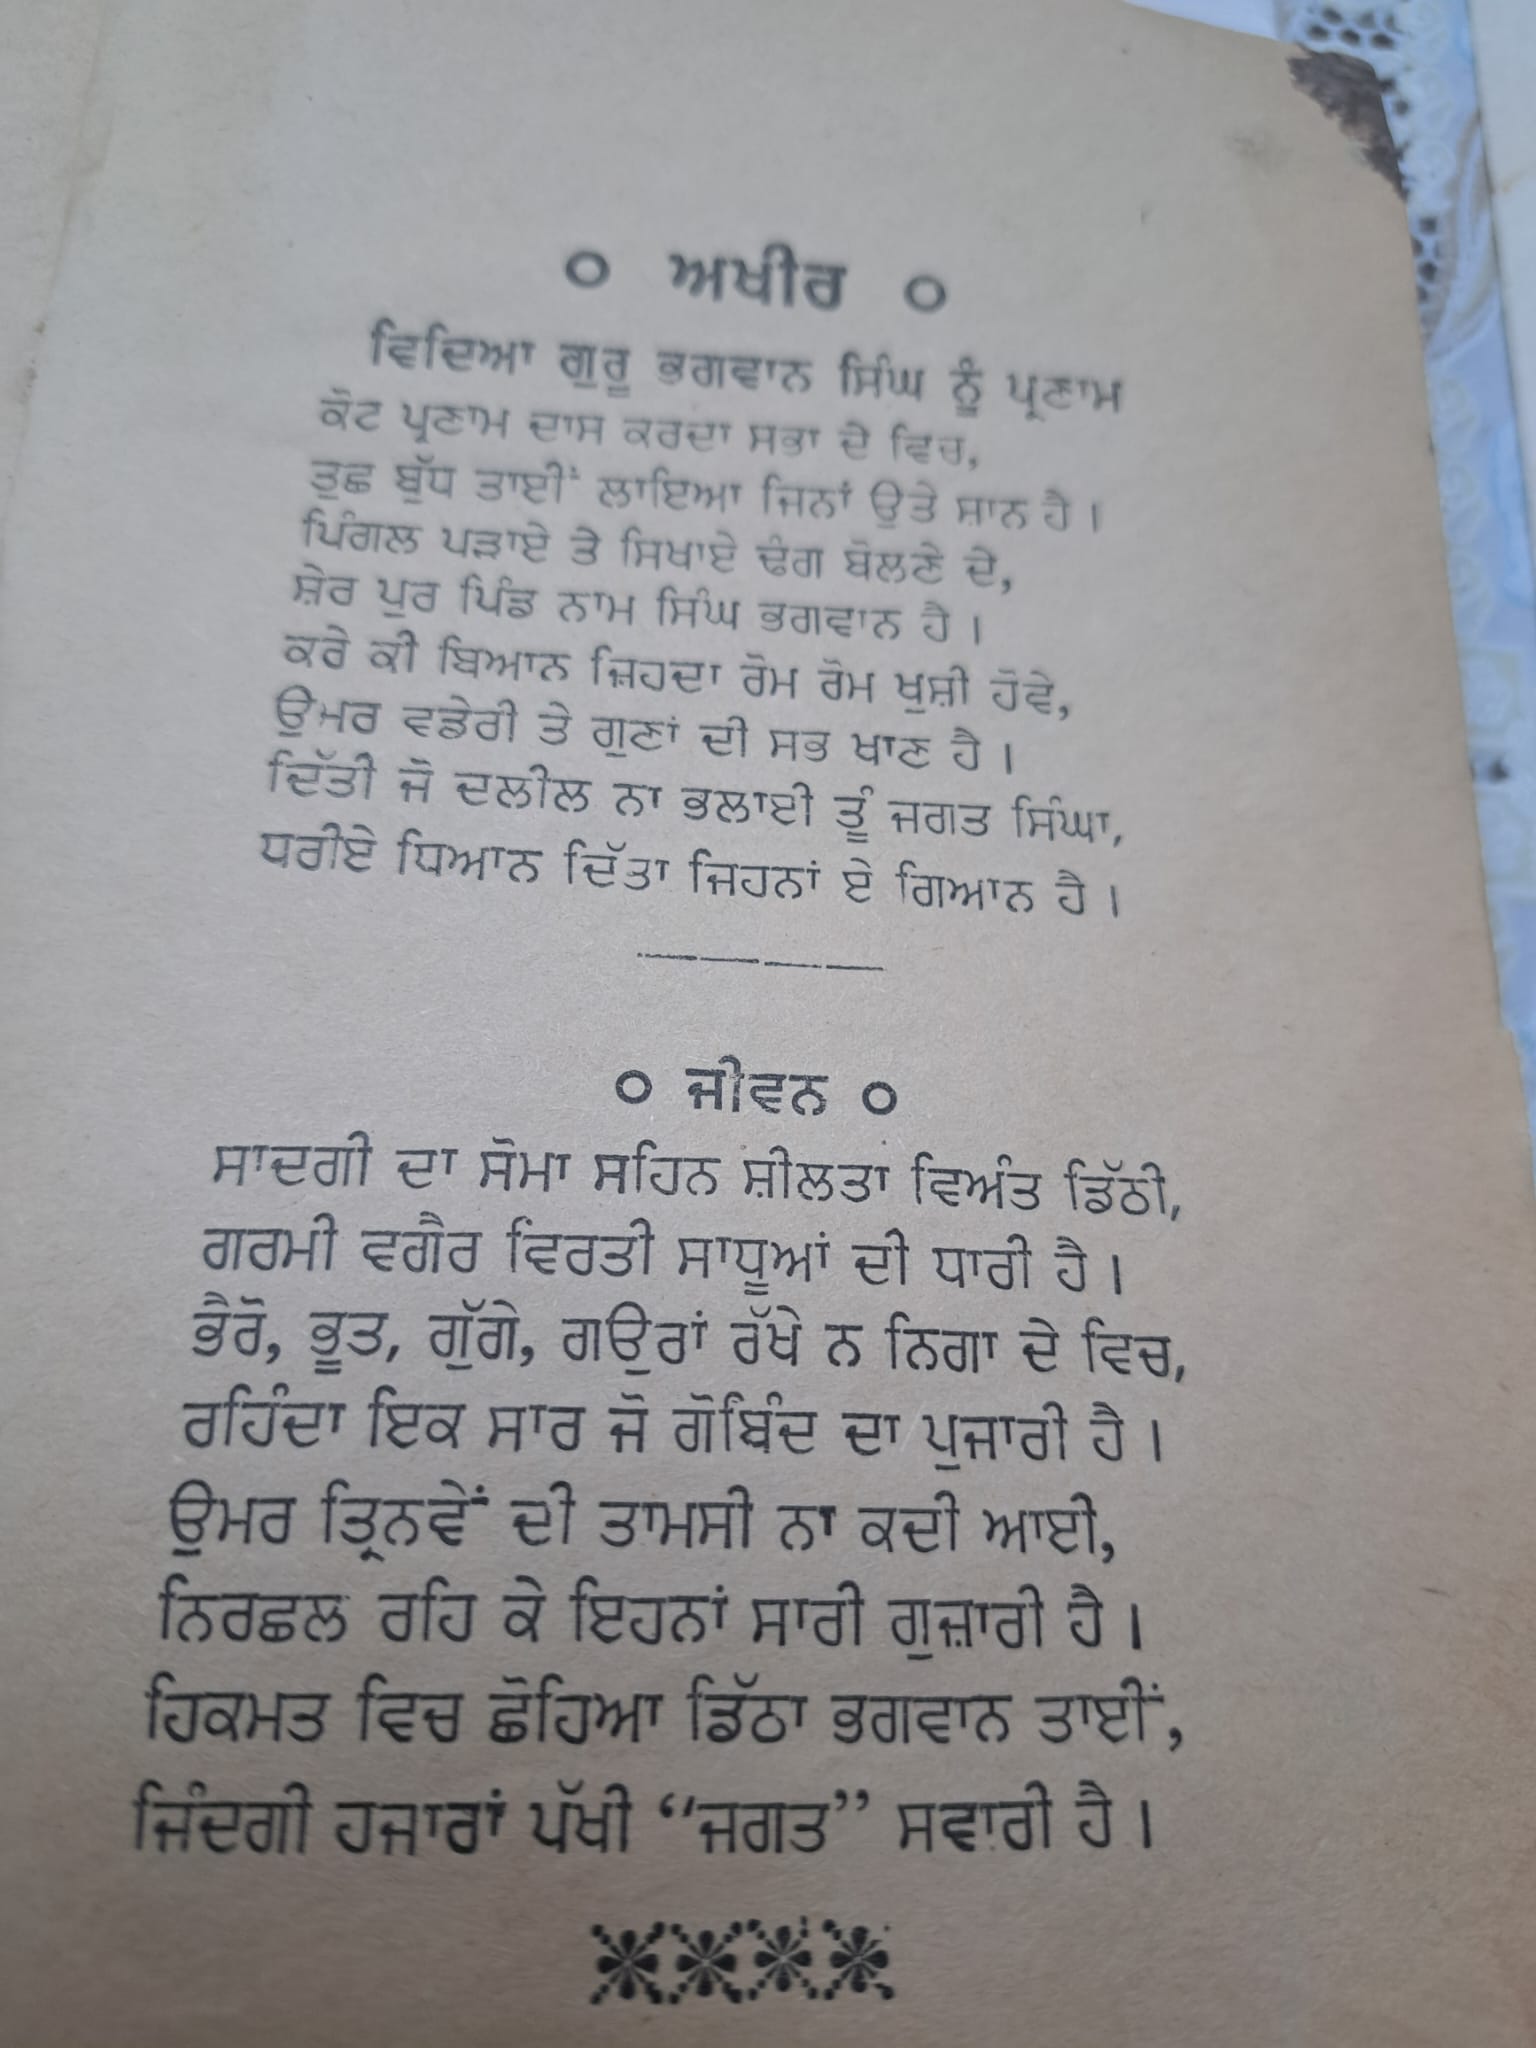 ੦ ਅਖੀਰ ੦
ਵਿਦਿਆ ਗੁਰੂ ਭਗਵਾਨ ਸਿੰਘ ਨੂੰ ਪ੍ਰਣਾਮ
ਕੋਟ ਪ੍ਰਣਾਮ ਦਾਸ ਕਰਦਾ ਸਭਾ ਦੇ ਵਿਚ,
ਤੁਛ ਬੁੱਧ ਤਾਈਂ ਲਾਇਆ ਜਿਨਾਂ ਉਤੇ ਸਾਨ ਹੈ ।
ਪਿੰਗਲ ਪੜਾਏ ਤੇ ਸਿਖਾਏ ਢੰਗ ਬੋਲਣੇ ਦੇ,
ਸ਼ੇਰ ਪੁਰ ਪਿੰਡ ਨਾਮ ਸਿੰਘ ਭਗਵਾਨ ਹੈ ।
ਕਰੇ ਕੀ ਬਿਆਨ ਜ਼ਿਹਦਾ ਰੋਮ ਰੋਮ ਖੁਸ਼ੀ ਹੋਵੇ,
ਉਮਰ ਵਡੇਰੀ ਤੇ ਗੁਣਾਂ ਦੀ ਸਭ ਖਾਣ ਹੈ ।
ਦਿੱਤੀ ਜੋ ਦਲੀਲ ਨਾ ਭਲਾਈ ਤੂੰ ਜਗਤ ਸਿੰਘਾ,
ਧਰੀਏ ਧਿਆਨ ਦਿੱਤਾ ਜਿਹਨਾਂ ਏ ਗਿਆਨ ਹੈ ।
੦ ਜੀਵਨ ੦
ਸਾਦਗੀ ਦਾ ਸੋਮਾ ਸਹਿਨ ਸ਼ੀਲਤਾ ਵਿਅੰਤ ਡਿੱਠੀ,
ਗਰਮੀ ਵਗੈਰ ਵਿਰਤੀ ਸਾਧੂਆਂ ਦੀ ਧਾਰੀ ਹੈ ।
ਭੈਰੋ, ਭੂਤ, ਗੁੱਗੇ, ਗਉਰਾਂ ਰੱਖੇ ਨ ਨਿਗਾ ਦੇ ਵਿਚ,
ਰਹਿੰਦਾ ਇਕ ਸਾਰ ਜੋ ਗੋਬਿੰਦ ਦਾ ਪੁਜਾਰੀ ਹੈ ।
ਉਮਰ ਤ੍ਰਿਨਵੇਂ ਦੀ ਤਾਮਸੀ ਨਾ ਕਦੀ ਆਈ,
ਨਿਰਛਲ ਰਹਿ ਕੇ ਇਹਨਾਂ ਸਾਰੀ ਗੁਜ਼ਾਰੀ ਹੈ ।
ਹਿਕਮਤ ਵਿਚ ਛੋਹਿਆ ਡਿੱਠਾ ਭਗਵਾਨ ਤਾਈਂ,
ਜਿੰਦਗੀ ਹਜਾਰਾਂ ਪੱਖੀ “ਜਗਤ” ਸਵਾਰੀ ਹੈ ।